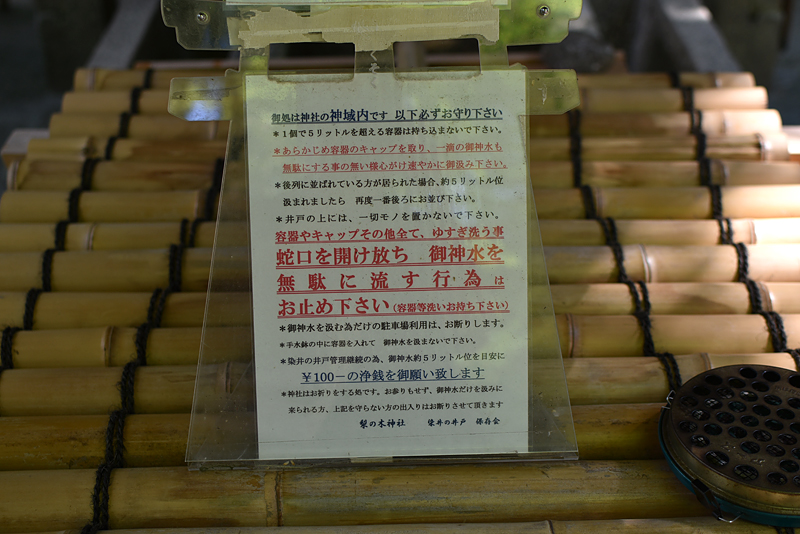 御処は神社の神域内です 以下必ずお守り下さい
＊１個で５リットルを超える容器は持ち込まないで下さい。
＊あらかじめ容器のキャップを取り、一滴の御神水も
無駄にする事の無い様心がけ速やかに御汲み下さい。
＊後列に並ばれている方が居られた場合、約５リットル位
汲まれましたら 再度一番後ろにお並び下さい。
＊井戸の上には、一切モノを置かないで下さい。
容器やキャップその他全て、ゆすぎ洗う事
蛇口を開け放ち 御神水を
無駄に流す行為は
お止め下さい（容器等洗いお持ち下さい）
＊御神水を汲む為だけの駐車場利用は、お断りします。
＊手水鉢の中に容器を入れて 御神水を汲まないで下さい。
＊染井の井戸管理継続の為、御神水約５リットル位を目安に
￥100－の浄銭を御願い致します
＊神社はお祈りをする処です。お参りもせず、御神水だけを汲みに
来られる方、上記を守らない方の出入りはお断りさせて頂きます
梨の木神社 染井の井戸 保存会